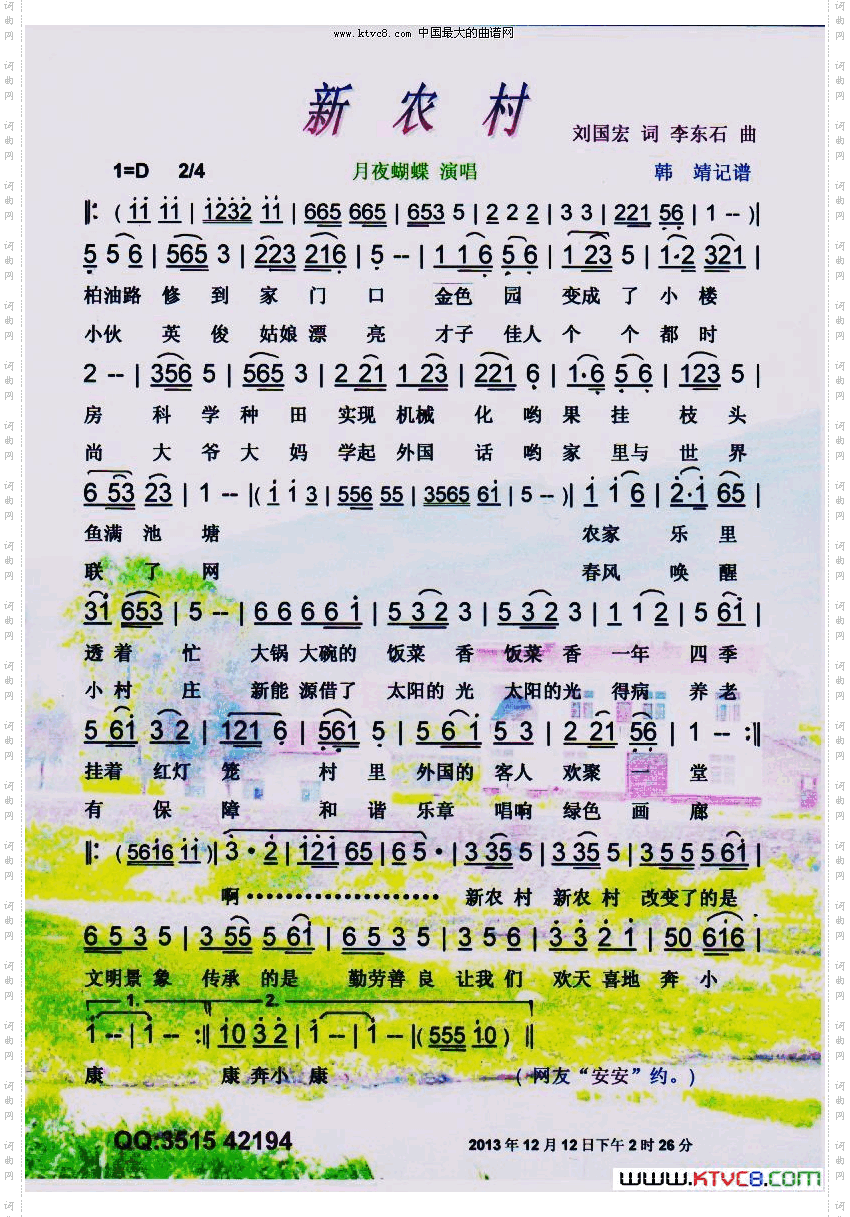 www.ktvc8.com 中国最大的曲谱网
新 农 村
刘国宏 词 李东石 曲
1=D 2/4 月夜蝴蝶 演唱 韩 靖记谱
‖: ( 11 11 | 1232 11 | 665 665 | 653 5 | 2 2 2 | 3 3 | 221 56 | 1 -- )|
5 5 6 | 565 3 | 223 216 | 5 -- | 1 1 6 5 6 | 1 23 5 | 1·2 321 |
柏油路 修 到 家 门 口 金色 园 变成 了 小 楼
小伙 英 俊 姑娘 漂 亮 才子 佳人 个 个 都 时
2 -- | 356 5 | 565 3 | 2 21 1 23 | 221 6 | 1·6 5 6 | 123 5 |
房 科 学 种 田 实现 机械 化 哟 果 挂 枝 头
尚 大 爷 大 妈 学起 外国 话 哟 家 里与 世 界
6 53 23 | 1 -- |( 1 1 3 | 556 55 | 3565 61 | 5 -- )| 1 1 6 | 2·1 65 |
鱼满 池 塘 农家 乐 里
联 了 网 春风 唤 醒
31 653 | 5 -- | 6 6 6 6 1 | 5 32 3 | 5 32 3 | 1 1 2 | 5 61 |
透 着 忙 大锅 大碗的 饭菜 香 饭菜 香 一年 四 季
小 村 庄 新能 源借了 太阳的 光 太阳的 光 得病 养 老
5 61 3 2 | 121 6 | 561 5 | 5 6 1 5 3 | 2 21 56 | 1 -- :‖
挂着 红灯 笼 村 里 外国的 客人 欢聚 一 堂
有 保 障 和 谐 乐章 唱响 绿色 画 廊
‖: ( 5616 11 )| 3 · 2 | 121 65 | 6 5 · | 3 35 5 | 3 35 5 | 3 5 5 5 61 |
啊······················ 新农 村 新农 村 改变了的是
6 5 3 5 | 3 55 5 61 | 6 5 3 5 | 3 5 6 | 3 3 2 1 | 50 616 |
文明景 象 传承 的是 勤劳善 良 让我 们 欢天 喜地 奔 小
1. 2.
1 -- | 1 -- :‖ 10 32 | 1 -- | 1 -- |( 555 10 ) ‖
康 康 奔小 康 ( 网友“安安”约。)
QQ:3515 42194 2013 年 12 月 12 日下午 2 时 26 分
www.KTVC8.com